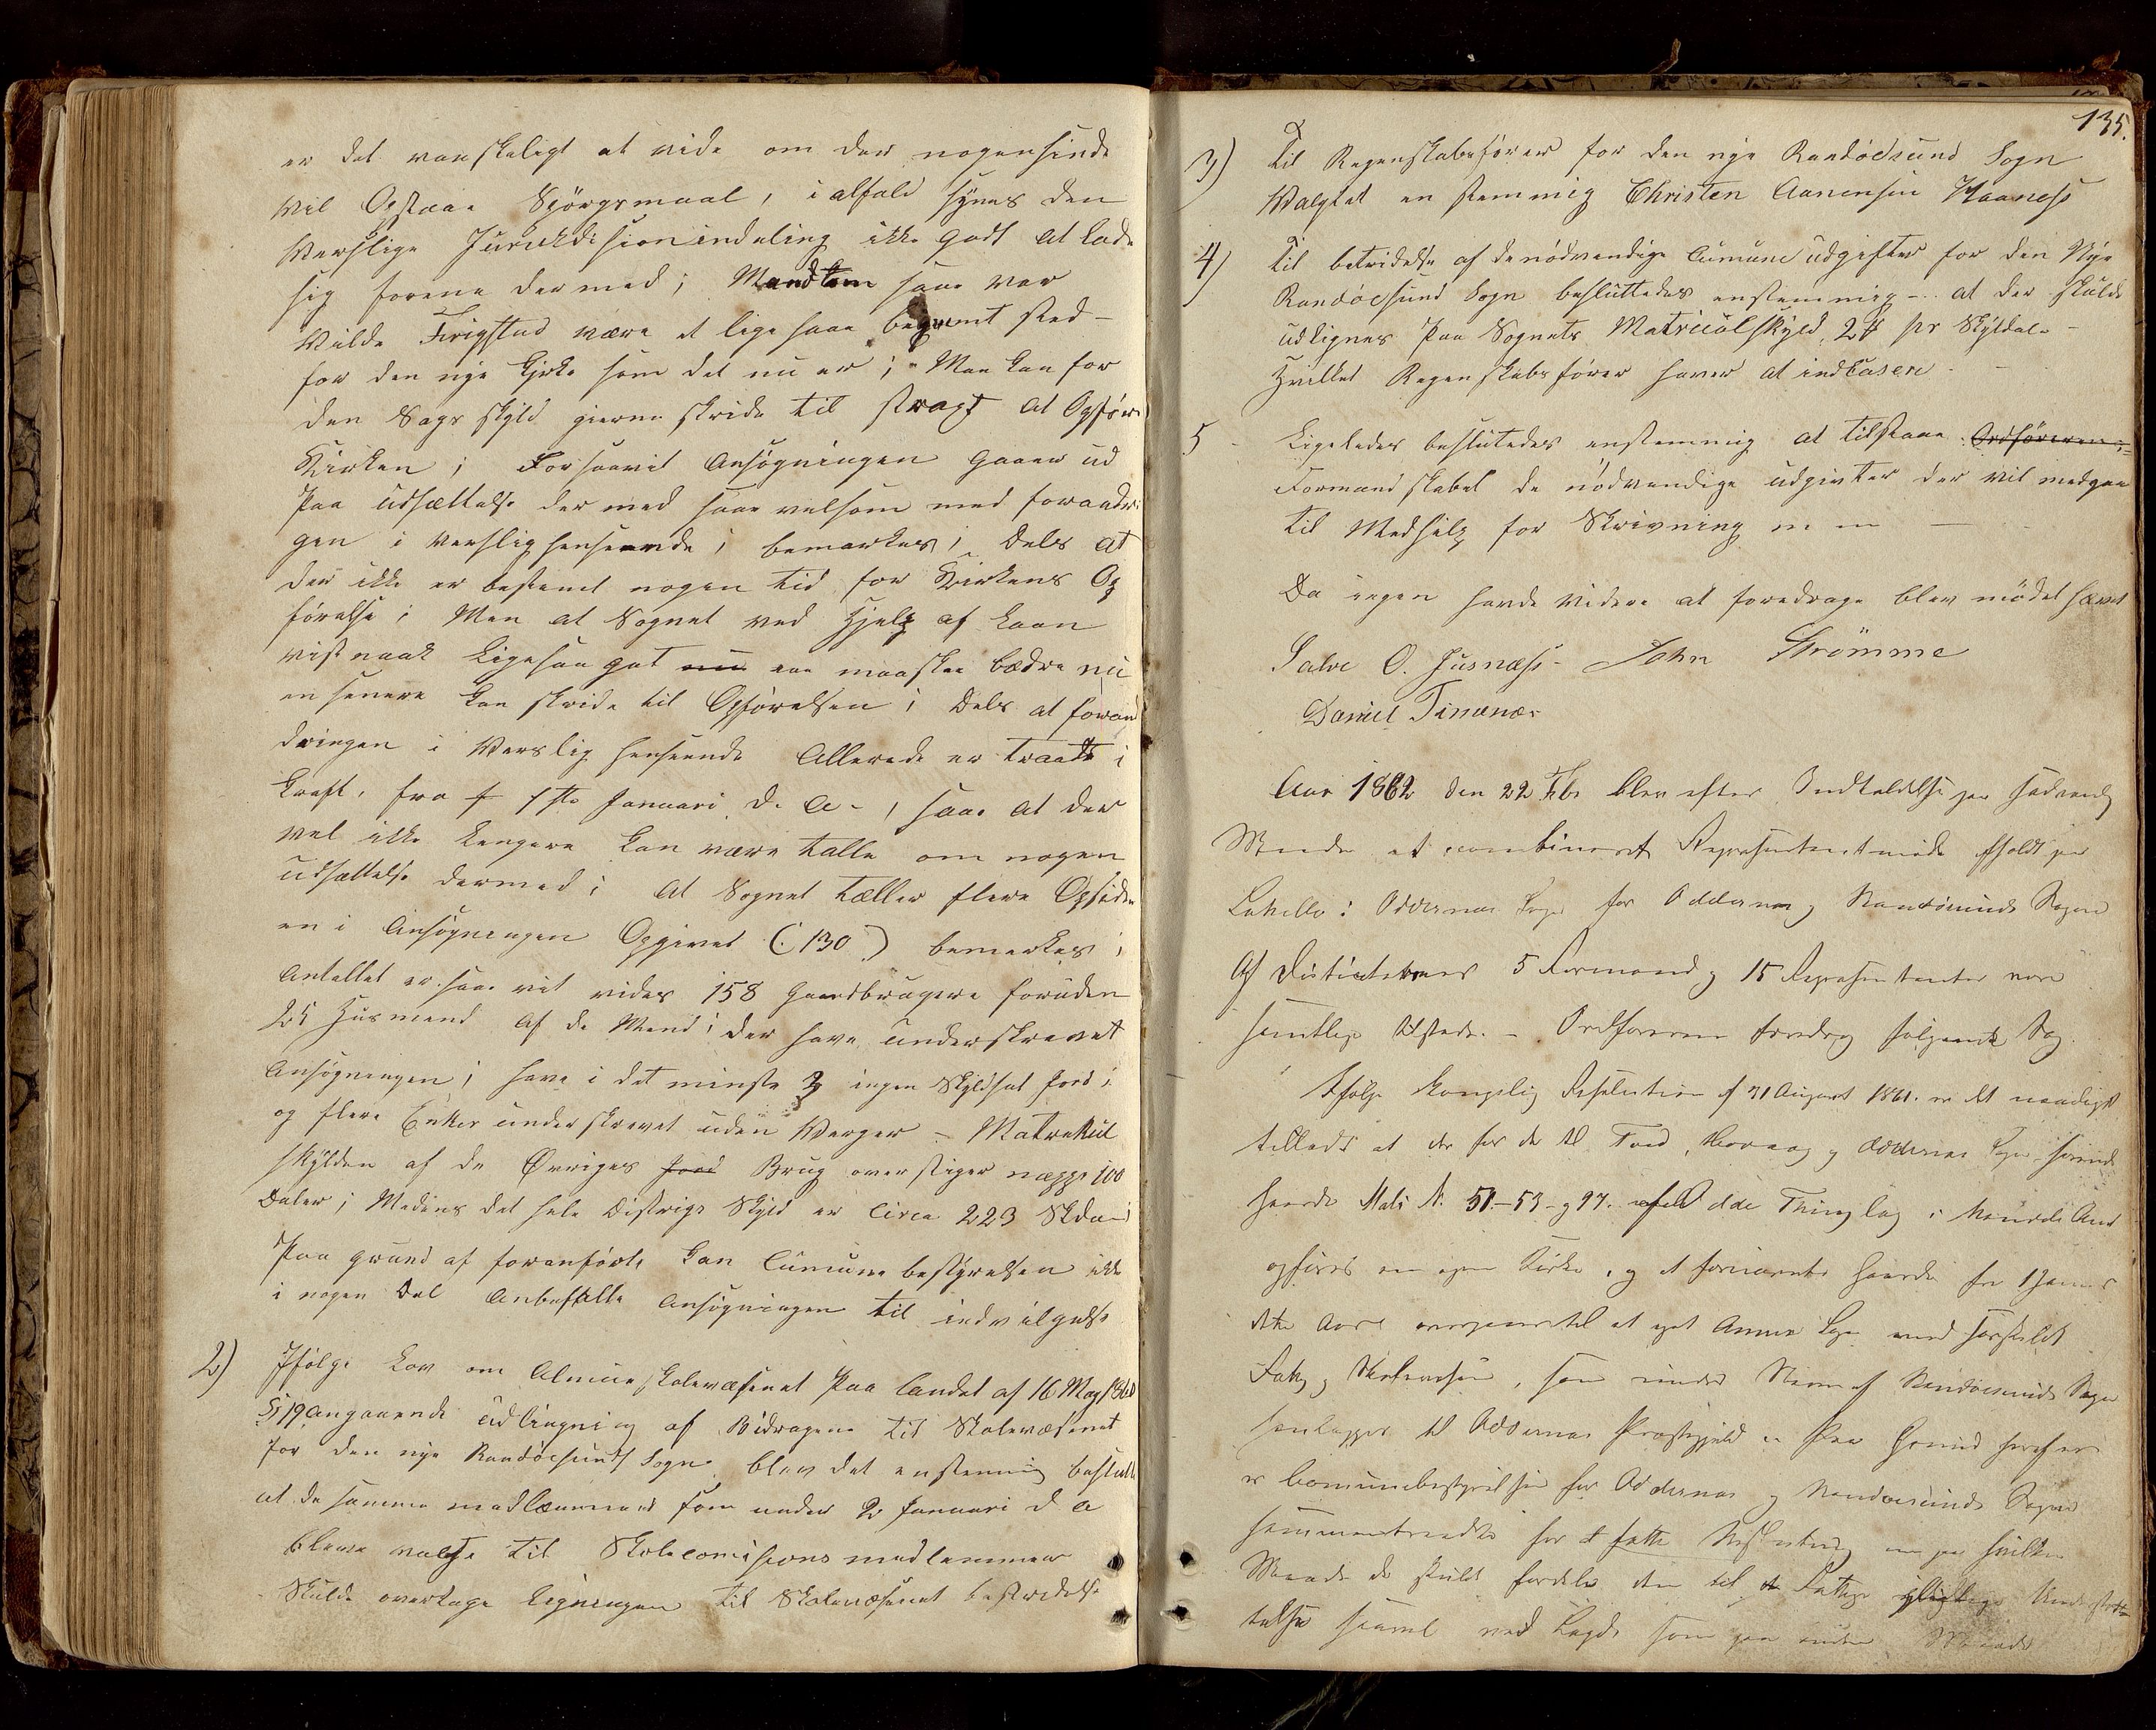 er det vanskeligt at vide om der nogensinde
vil Opstaae Spörgsmaal, i alfald synes den
Verslige Jurickdisionindeling ikke godt at lade
sig forene der med; Mendtem saae var
Vilde Frigstad være et lige saae beqvemt sted-
for den nye Kjrke som det nu er; Man kan for
den Sags skyld gierne skride til strags at Opføre
Kirken; Forsaavit Ansögningen gaaer ud
Paa Udsættelse der med saae velsom med foraandri
gen i verslighenseende; bemærkes; Dels at
der ikke er bestemt nogen tid for Kirkens Op
førelse; Men at Sognet ved Hjelp af Laan
vistnaak Ligesaa gat nu aa maaskee bædre nu
en senere kan skride til Opførelsen; Dels at foran
dringen i Verslig henseende Allerede er traadt i
kraft, fra 1ste Januari d. A-, saae at der
vel ikke Lengere kan være talle om nogen
Udsættelse dermed; At Sognet tæller flere Opsidere
en i Ansøgningen Opgivet (: 130 :) bemerkes;
Antallet er saae vit vides 158 Gaardbrugere foruden
25 Husmend Af de Mend; der have underskrevet
Ansøgningen; have i det minste 3 ingen Skyldsat Jord;
og flere Enker underskrevet uden Verger - Matrekul
skylden af de Øvriges Jord Brug overstiger neppe 100
Daler; Medens det hele Distrigs Skyld er Circa 223 Skdaler
Paa grund af foranførte kan Cumune bestyrelsen ikke
i nogen Del Anbefalle Ansøgningen til indvilgelse
2) Ifölge Lov om Almueskolevæsenet Paa Landet af 16 May 1860
§ 19 angaaende Udlingning af Bidragene til Skolevæsenet
for den nye Randöesunds Sogn blev det enstemmig beslutt
at de samme medlæmmer som under 2 Januari d A
bleve valgte til Skolecomisions medlemmer
Skulde overtage Ligningen til Skolevæsenet bestridelse
135.
3) Til Regenskabsfører for den nye Randöesund Sogn
Valgtes en stemmig Christen Aanensen Haaness
4) Til bestridelse af de nödvendige Cumune udgifter for den Nye
Randöesund Sogn besluttedes enstemmig - at der skulde
udlignes Paa Sognets Matriculskyld, 2 pr Skyldale -
Hvilket Regenskabsfører haver at indkasere -
5 - Ligeledes beslutedes enstemmig at tilstaae Ordföreren
Formandskabet de nödvendige udgivter der vil medgaae
til Medhjelp for Skrivning m m -
Da ingen havde videre at foredrage blev mödet hævet
Salve O. Jusnæss - John Strömme
Daniel Timenæs
Aar 1862 den 22 Feb. blev efter Indkaldelse paa sedvanlig
Maade et combineret Representantmöde afholdt paa
i Oddernes Sogn for Oddernes og Randöesunds Sogne
Af Distikternes 5 Formænd og 15 Representanter vare
samtlige tilstede. - Ordföreren foredrog følgende Sag.
Ifølge Kongelig Resolution af 31 August 1861. er det naadigst
tilladt at der for de til Tved, og Oddernes Sogn hørende
Gaarde Matr. N. 51.-53- og 97. af Odde Thinglag
opføres en egen Kirke, og at fornævnte Gaarde fra 1 Januar
dette Aar overgaaer til et eget Annex Sogn med særskildt
Fattig og Skolevæsen, som under Navn af Randöesunds Sogn
henlægges til Oddernes Præstegjeld - Paa Grund heraf
er Comunebestyrelsen for Oddernes og Randoesunds Sogne
sammentraadte for at fatte Beslutning om paa hvilken
Maade de skulde fordele den til Fattige Understøt
telse saavel ved Lægd som paa anden Maade